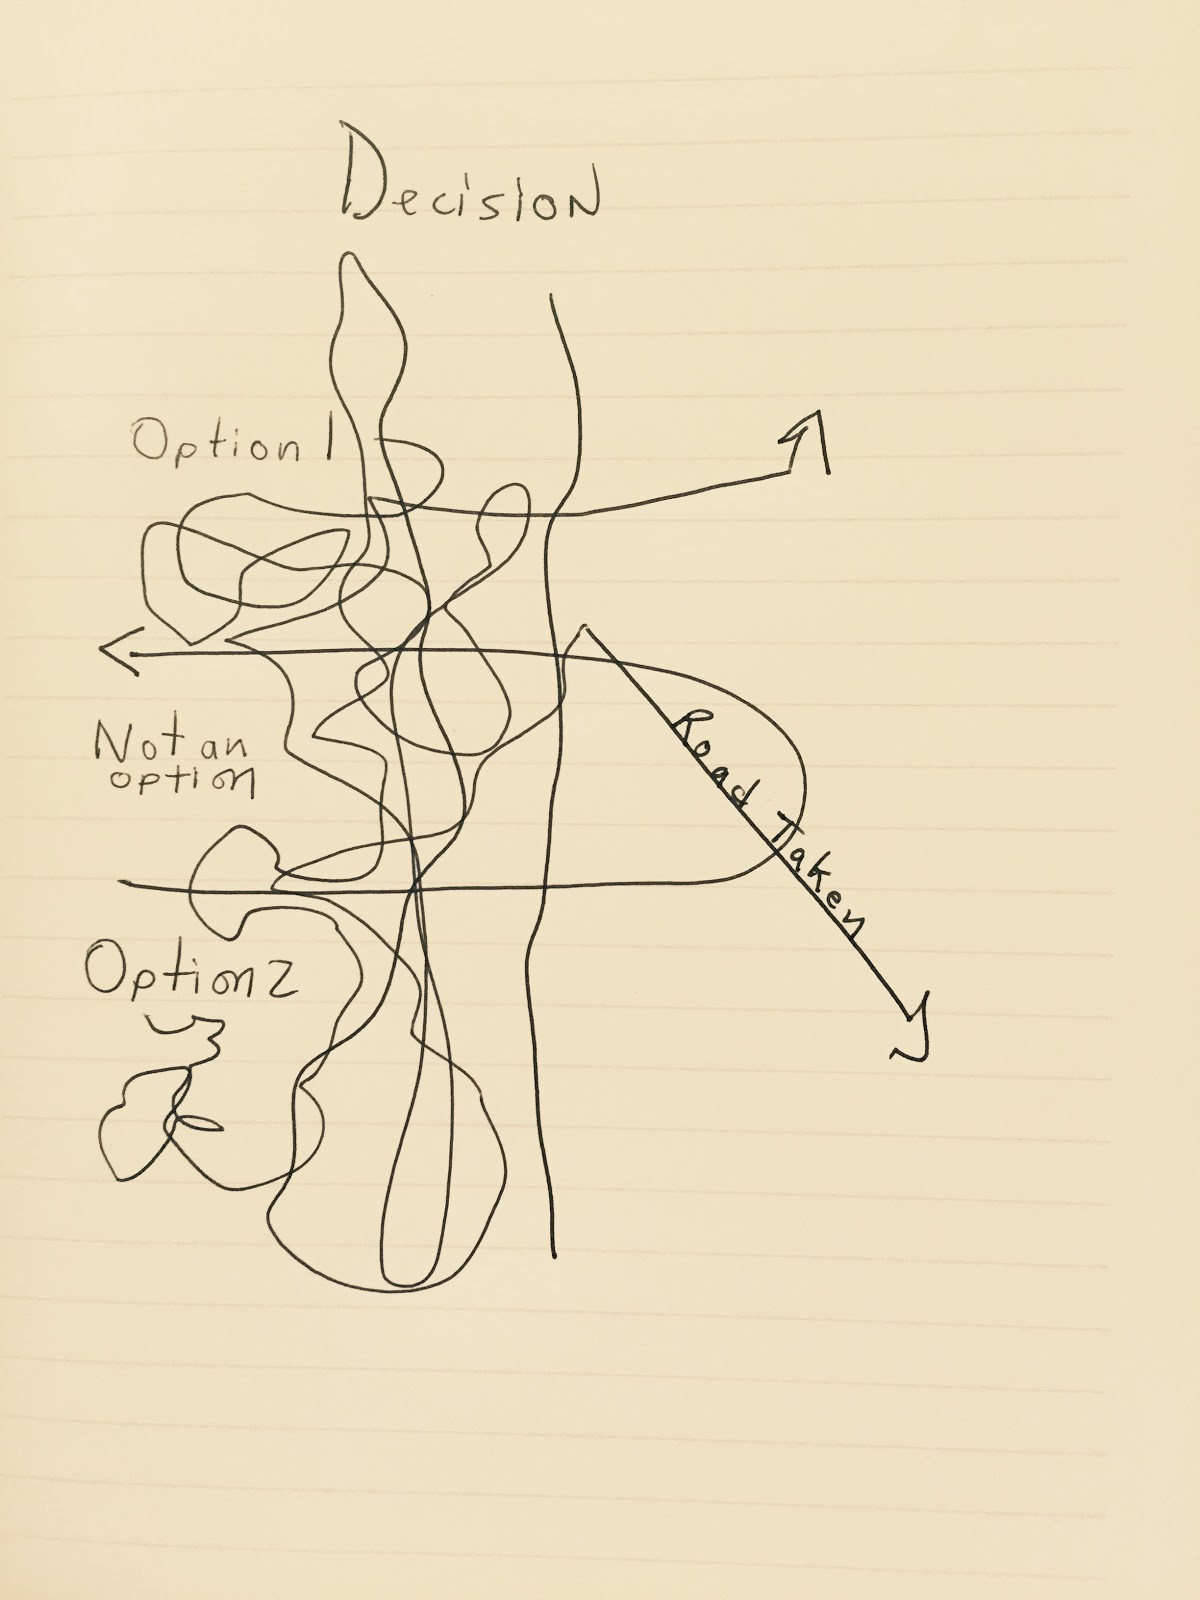 Decision
Option 1
Not an
option
Road Taken
Option 2